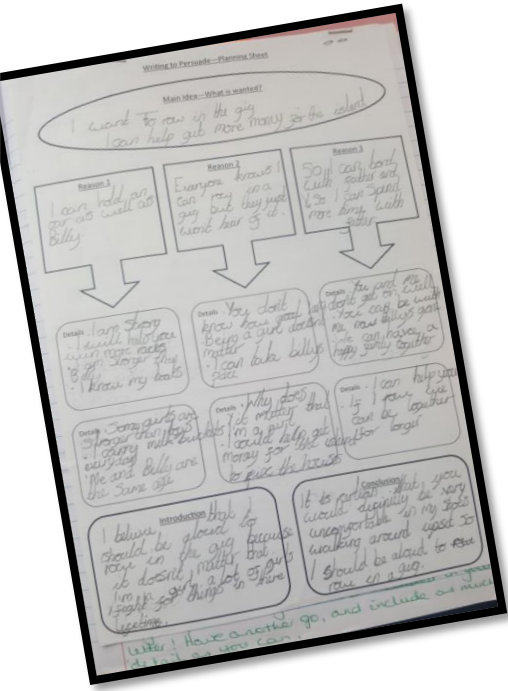 Writing to Persuade—Planning Sheet
Main Idea—What is wanted?
I want to row in the gig
I can help get more money for the island
Reason 1
I can hold an
oar as well as
Billy.
Reason 2
Everyone knows I
can row in a
gig but they just
wont hear of it.
Reason 3
So I can bond
with father and
So I can spend
more time with
father
Details I am strong
I will help you
win more races
I'm stronger than
Billy
I know my boats
Details You don't
know how good I am
Being a girl doesn't
matter
I can take billys
place
Details You and me
don't get on well
You can be with
me now Billys gone
We can have a
happy family together
Details Some girls are
stronger than boys
I carry milk buckets
everyday
Me and Billy are
the same age
Details Why does
it matter that
I'm a girl
I could help get
money for the island
to save the houses
Details I can help you
If I row we
can be together
for longer
Introduction
I believe that I
should be aloud to
row in the gig because
it doesn't matter that
I'm a girl a lot of girls
fight for things in there
Conclusion
It is that you
would be very
uncomfortable in my
walking around upset so
I should be aloud to
row in a gig.
letter! Have another go, and include as much
detail as you can.